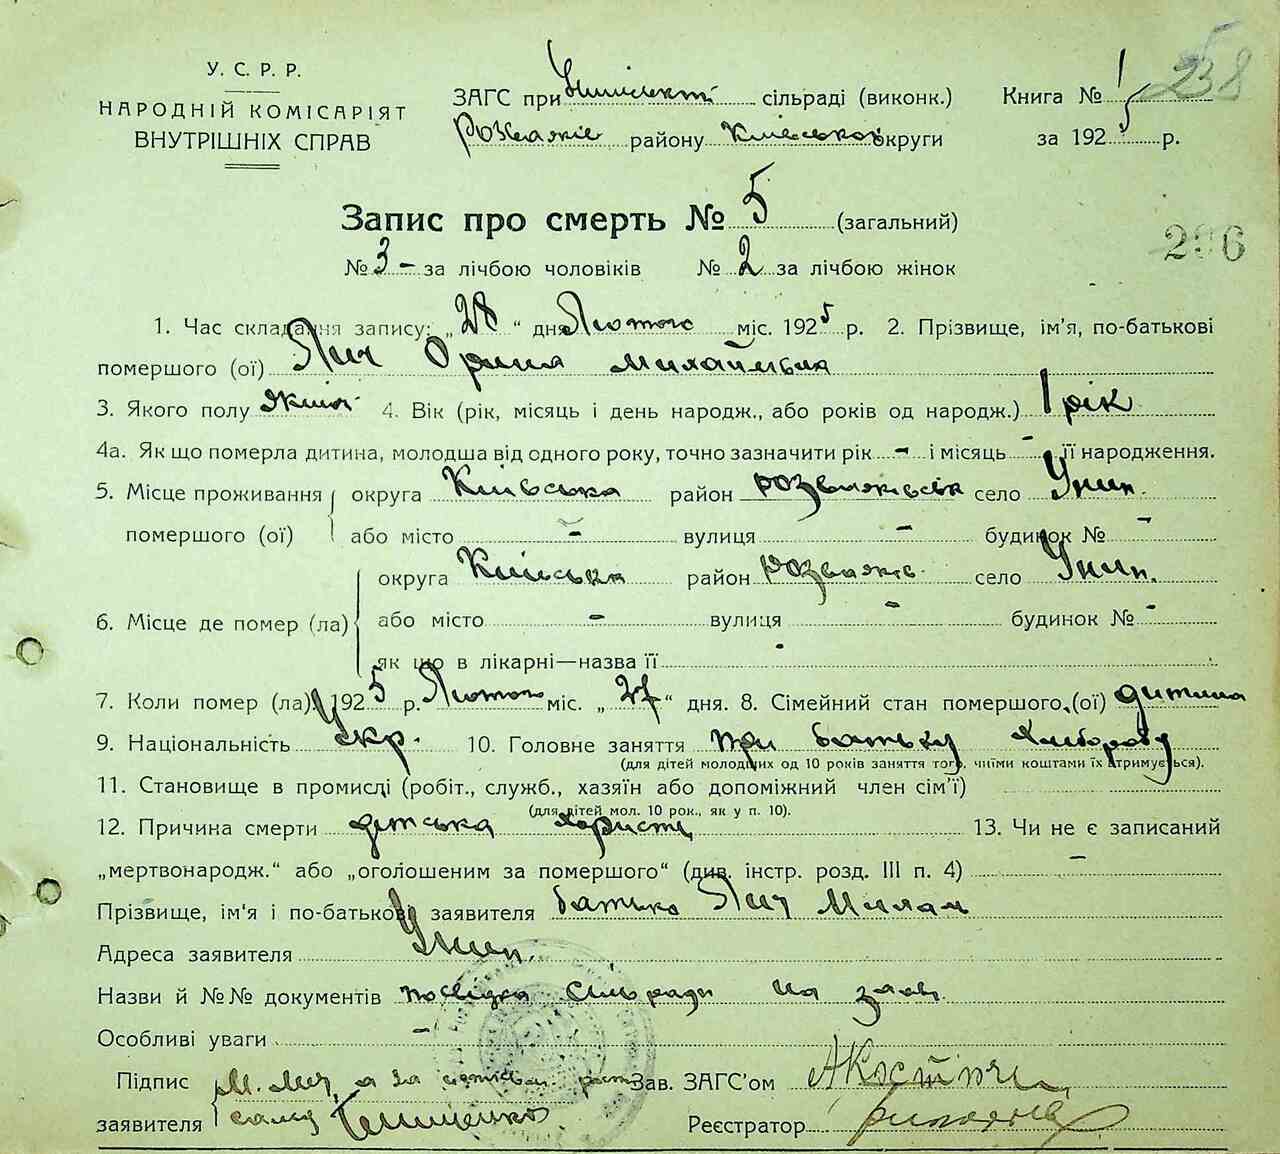 У. С. Р. Р.
НАРОДНІЙ КОМІСАРІЯТ
ВНУТРІШНІХ СПРАВ
ЗАГС при сільраді (виконк.)
району Київської округи
Книга № 1
за 1925 р.
238
Запис про смерть № 5 (загальний)
296
№ 3 - за лічбою чоловіків № 2 за лічбою жінок
1. Час складання запису: „28“ дня Лютого міс. 1925 р. 2. Прізвище, ім'я, по-батькові
помершого (ої) Лич Орина Михайлівна
3. Якого полу жіноч 4. Вік (рік, місяць і день народж., або років од народж.) 1 рік
4а. Як що померла дитина, молодша від одного року, точно зазначити рік - і місяць - її народження.
5. Місце проживання округа Київська район розважівськ село Унин.
помершого (ої) або місто - вулиця - будинок № -
округа Київська район розважів. село Унин.
6. Місце де помер (ла) або місто - вулиця - будинок № -
як що в лікарні—назва її
7. Коли помер (ла) 1925 р. Лютого міс. „27“ дня. 8. Сімейний стан помершого (ої) дитина
9. Національність Укр. 10. Головне заняття при батьку хлібороб
(для дітей молодших од 10 років заняття того, чиїми коштами їх утримується).
11. Становище в промислі (робіт., служб., хазяїн або допоміжний член сім'ї)
(для дітей мол. 10 рок., як у п. 10).
12. Причина смерти дітська 13. Чи не є записаний
„мертвонародж.“ або „оголошеним за помершого“ (див. інстр. розд. III п. 4) -
Прізвище, ім'я і по-батькові заявителя батько Лич
Адреса заявителя Унин.
Назви й №№ документів посвідка сільради на
Особливі уваги -
Підпис М. Лич, а за Зав. ЗАГС'ом
заявителя Реєстратор